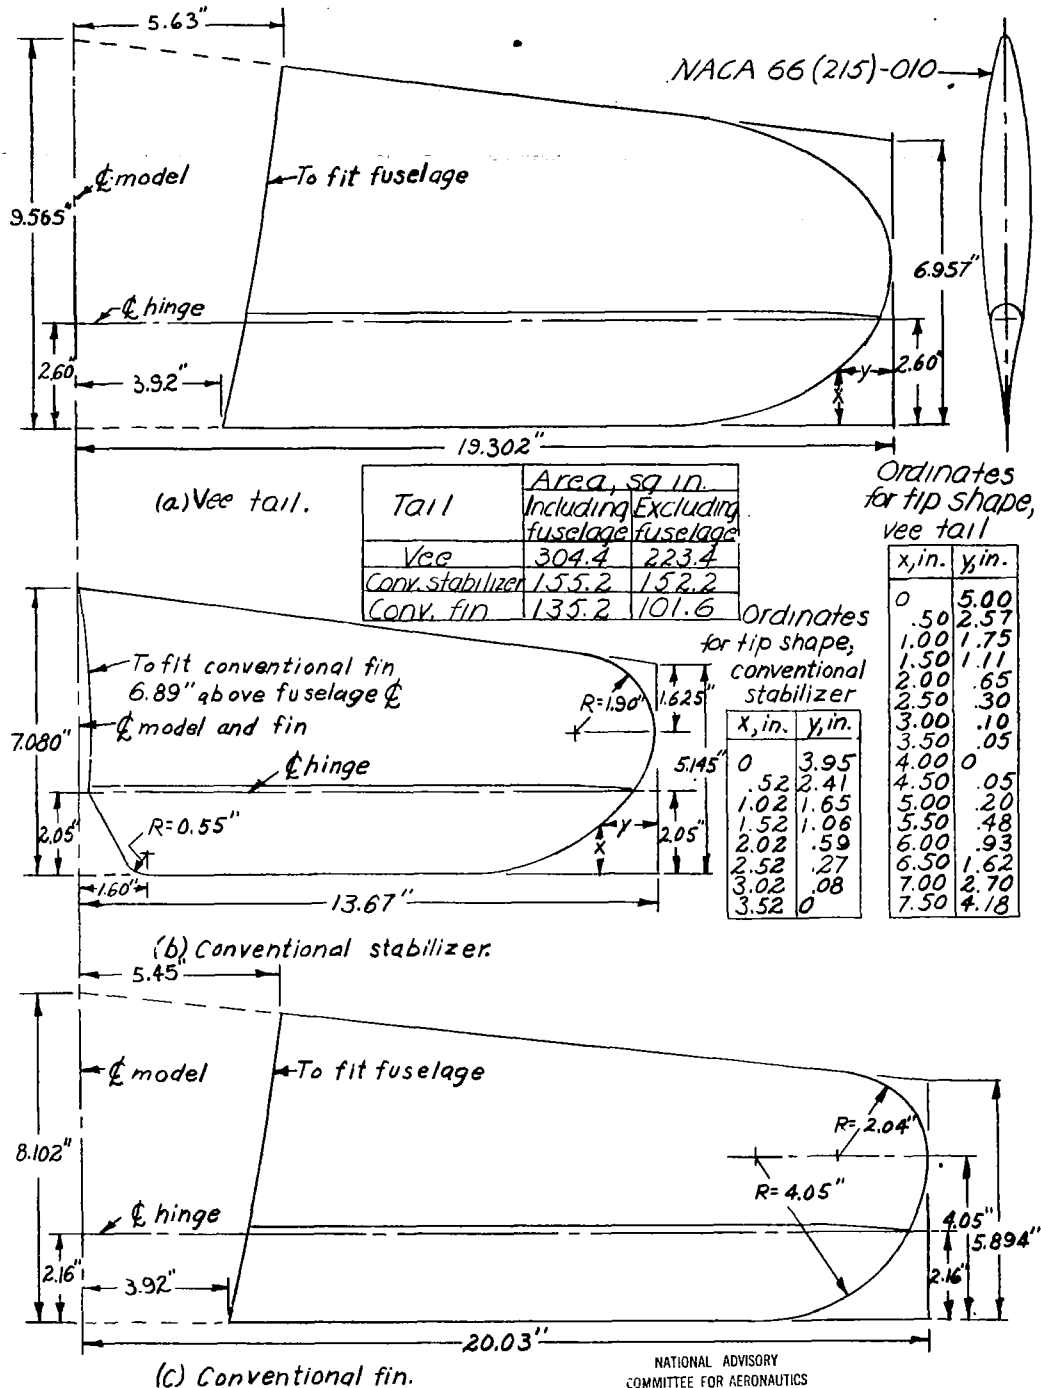 5.63"
NACA 66(215)-010
℄ model
To fit fuselage
9.565"
6.957"
℄ hinge
2.60"
3.92"
y
x
2.60"
19.302"
(a) Vee tail.
Tail
Area, sq in.
Including fuselage
Excluding fuselage
Vee 304.4 223.4
Conv. stabilizer 155.2 152.2
Conv. fin 135.2 101.6
Ordinates
for tip shape,
vee tail
x, in. y, in.
0 5.00
.50 2.57
1.00 1.75
1.50 1.11
2.00 .65
2.50 .30
3.00 .10
3.50 .05
4.00 0
4.50 .05
5.00 .20
5.50 .48
6.00 .93
6.50 1.62
7.00 2.70
7.50 4.18
Ordinates
for tip shape,
conventional
stabilizer
x, in. y, in.
0 3.95
.52 2.41
1.02 1.65
1.52 1.06
2.02 .59
2.52 .27
3.02 .08
3.52 0
To fit conventional fin
6.89" above fuselage ℄
℄ model and fin
R=1.90"
1.625"
7.080"
℄ hinge
5.145"
2.05"
R=0.55"
y
x
2.05"
1.60"
13.67"
(b) Conventional stabilizer.
5.45"
℄ model
To fit fuselage
8.102"
R= 2.04"
R= 4.05"
℄ hinge
4.05"
5.894"
2.16"
3.92"
2.16"
20.03"
(c) Conventional fin.
NATIONAL ADVISORY
COMMITTEE FOR AERONAUTICS